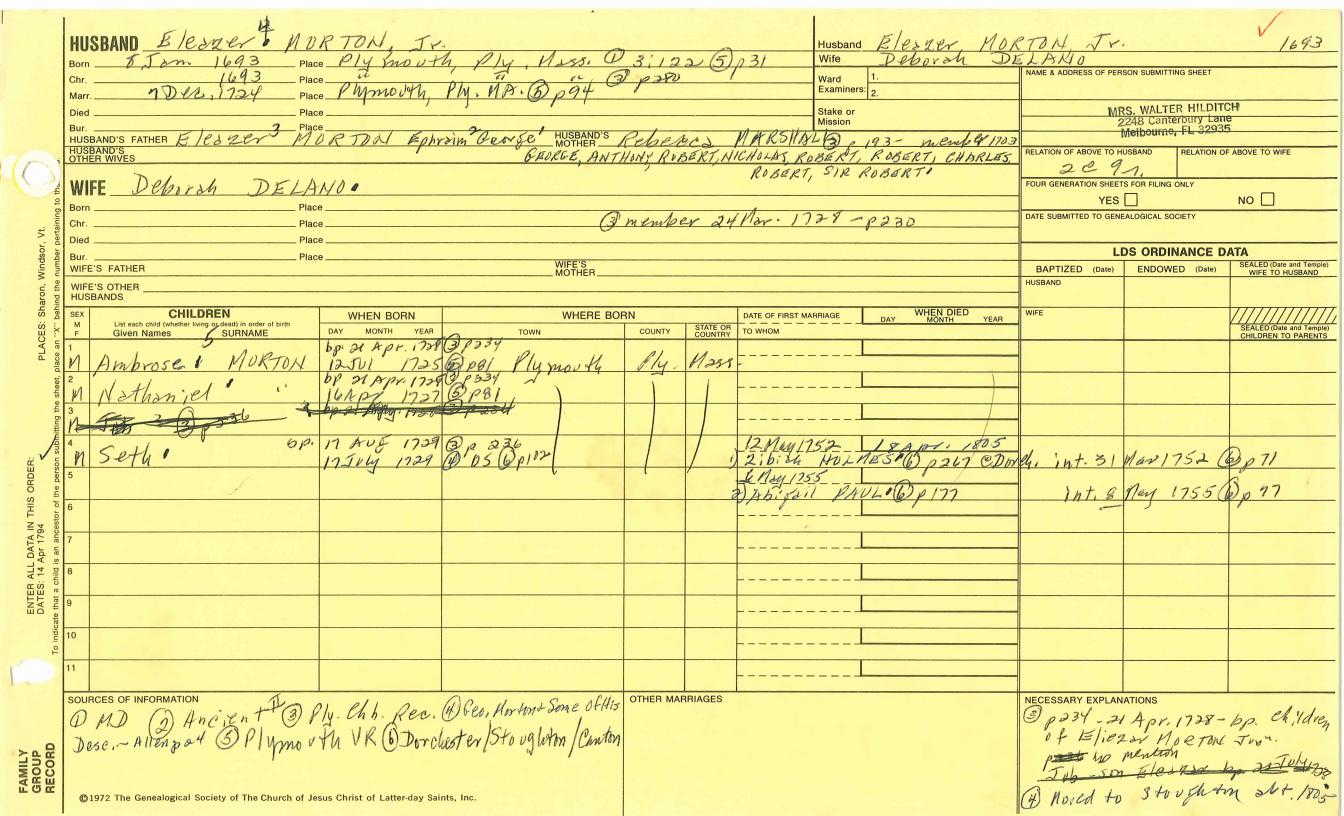 HUSBAND Eleazer 4 MORTON, Jr.
Born 8 Jan. 1693 Place Plymouth, Ply. Mass. ① 3:122 ⑤ p31
Chr. 1693 Place " " " ② p280
Marr. 7 Dec. 1724 Place Plymouth, Ply. MA. ⑤ p94
Died Place
Bur. Place
HUSBAND'S FATHER Eleazer 3 MORTON Ephraim 2 George 1 HUSBAND'S MOTHER Rebecca MARSHAL ③ p 193- member 1703
HUSBAND'S OTHER WIVES GEORGE, ANTHONY, ROBERT, NICHOLAS, ROBERT, ROBERT, CHARLES,
ROBERT, SIR ROBERT.
Husband Eleazer, MORTON Jr. 1693
Wife Deborah DELANO
Ward Examiners: 1.
2.
Stake or Mission
NAME & ADDRESS OF PERSON SUBMITTING SHEET
MRS. WALTER HILDITCH
2248 Canterbury Lane
Melbourne, FL 32935
RELATION OF ABOVE TO HUSBAND RELATION OF ABOVE TO WIFE
FOUR GENERATION SHEETS FOR FILING ONLY
YES NO
DATE SUBMITTED TO GENEALOGICAL SOCIETY
WIFE Deborah DELANO.
Born Place
Chr. Place ③ member 24 Mar. 1728 - p230
Died Place
Bur. Place
WIFE'S FATHER WIFE'S MOTHER
WIFE'S OTHER HUSBANDS
LDS ORDINANCE DATA
BAPTIZED (Date) ENDOWED (Date) SEALED (Date and Temple) WIFE TO HUSBAND
HUSBAND
WIFE
SEALED (Date and Temple) CHILDREN TO PARENTS
SEX M F CHILDREN WHEN BORN WHERE BORN DATE OF FIRST MARRIAGE WHEN DIED
List each child (whether living or dead) in order of birth
Given Names 5 SURNAME DAY MONTH YEAR TOWN COUNTY STATE OR COUNTRY TO WHOM DAY MONTH YEAR
1 bp. 21 Apr. 1728 ③ p234
M Ambrose MORTON 12 Jul 1725 ⑤ p81 Plymouth Ply. Mass.
2 bp 21 Apr. 1728 ③ p234
M Nathaniel " 16 Apr 1727 ⑤ p81
3
M
4 bp. 17 AUG 1729 ③ p 236 12 May 1752 18 Apr. 1805
M Seth 17 July 1729 ④ DS ⑥ p102 1) Zibiah HOLMES ⑥ p267 @ Dorch. int. 31 Mar 1752 ⑥ p71
5 6 May 1755
2) Abigail PAUL ⑥ p177 Int. 8 May 1755 ⑥ p 97
6
7
8
9
10
11
SOURCES OF INFORMATION
① MD ② Ancient II ③ Ply. Chh. Rec. ④ Geo. Morton & Some of His
Desc. - Allen p24 ⑤ Plymouth VR ⑥ Dorchester/Stoughton/Canton
OTHER MARRIAGES
NECESSARY EXPLANATIONS
③ p234 - 21 Apr. 1728 - bp. children
of Eliezar MORTON Junr.
no mention
Job son Eleazer bp 21 July 1728
④ Moved to Stoughton abt. 1805
©1972 The Genealogical Society of The Church of Jesus Christ of Latter-day Saints, Inc.
FAMILY GROUP RECORD
ENTER ALL DATA IN THIS ORDER:
DATES: 14 Apr 1794
PLACES: Sharon, Windsor, Vt.
To indicate that a child is an ancestor of the person submitting the sheet, place an "X" behind the number pertaining to